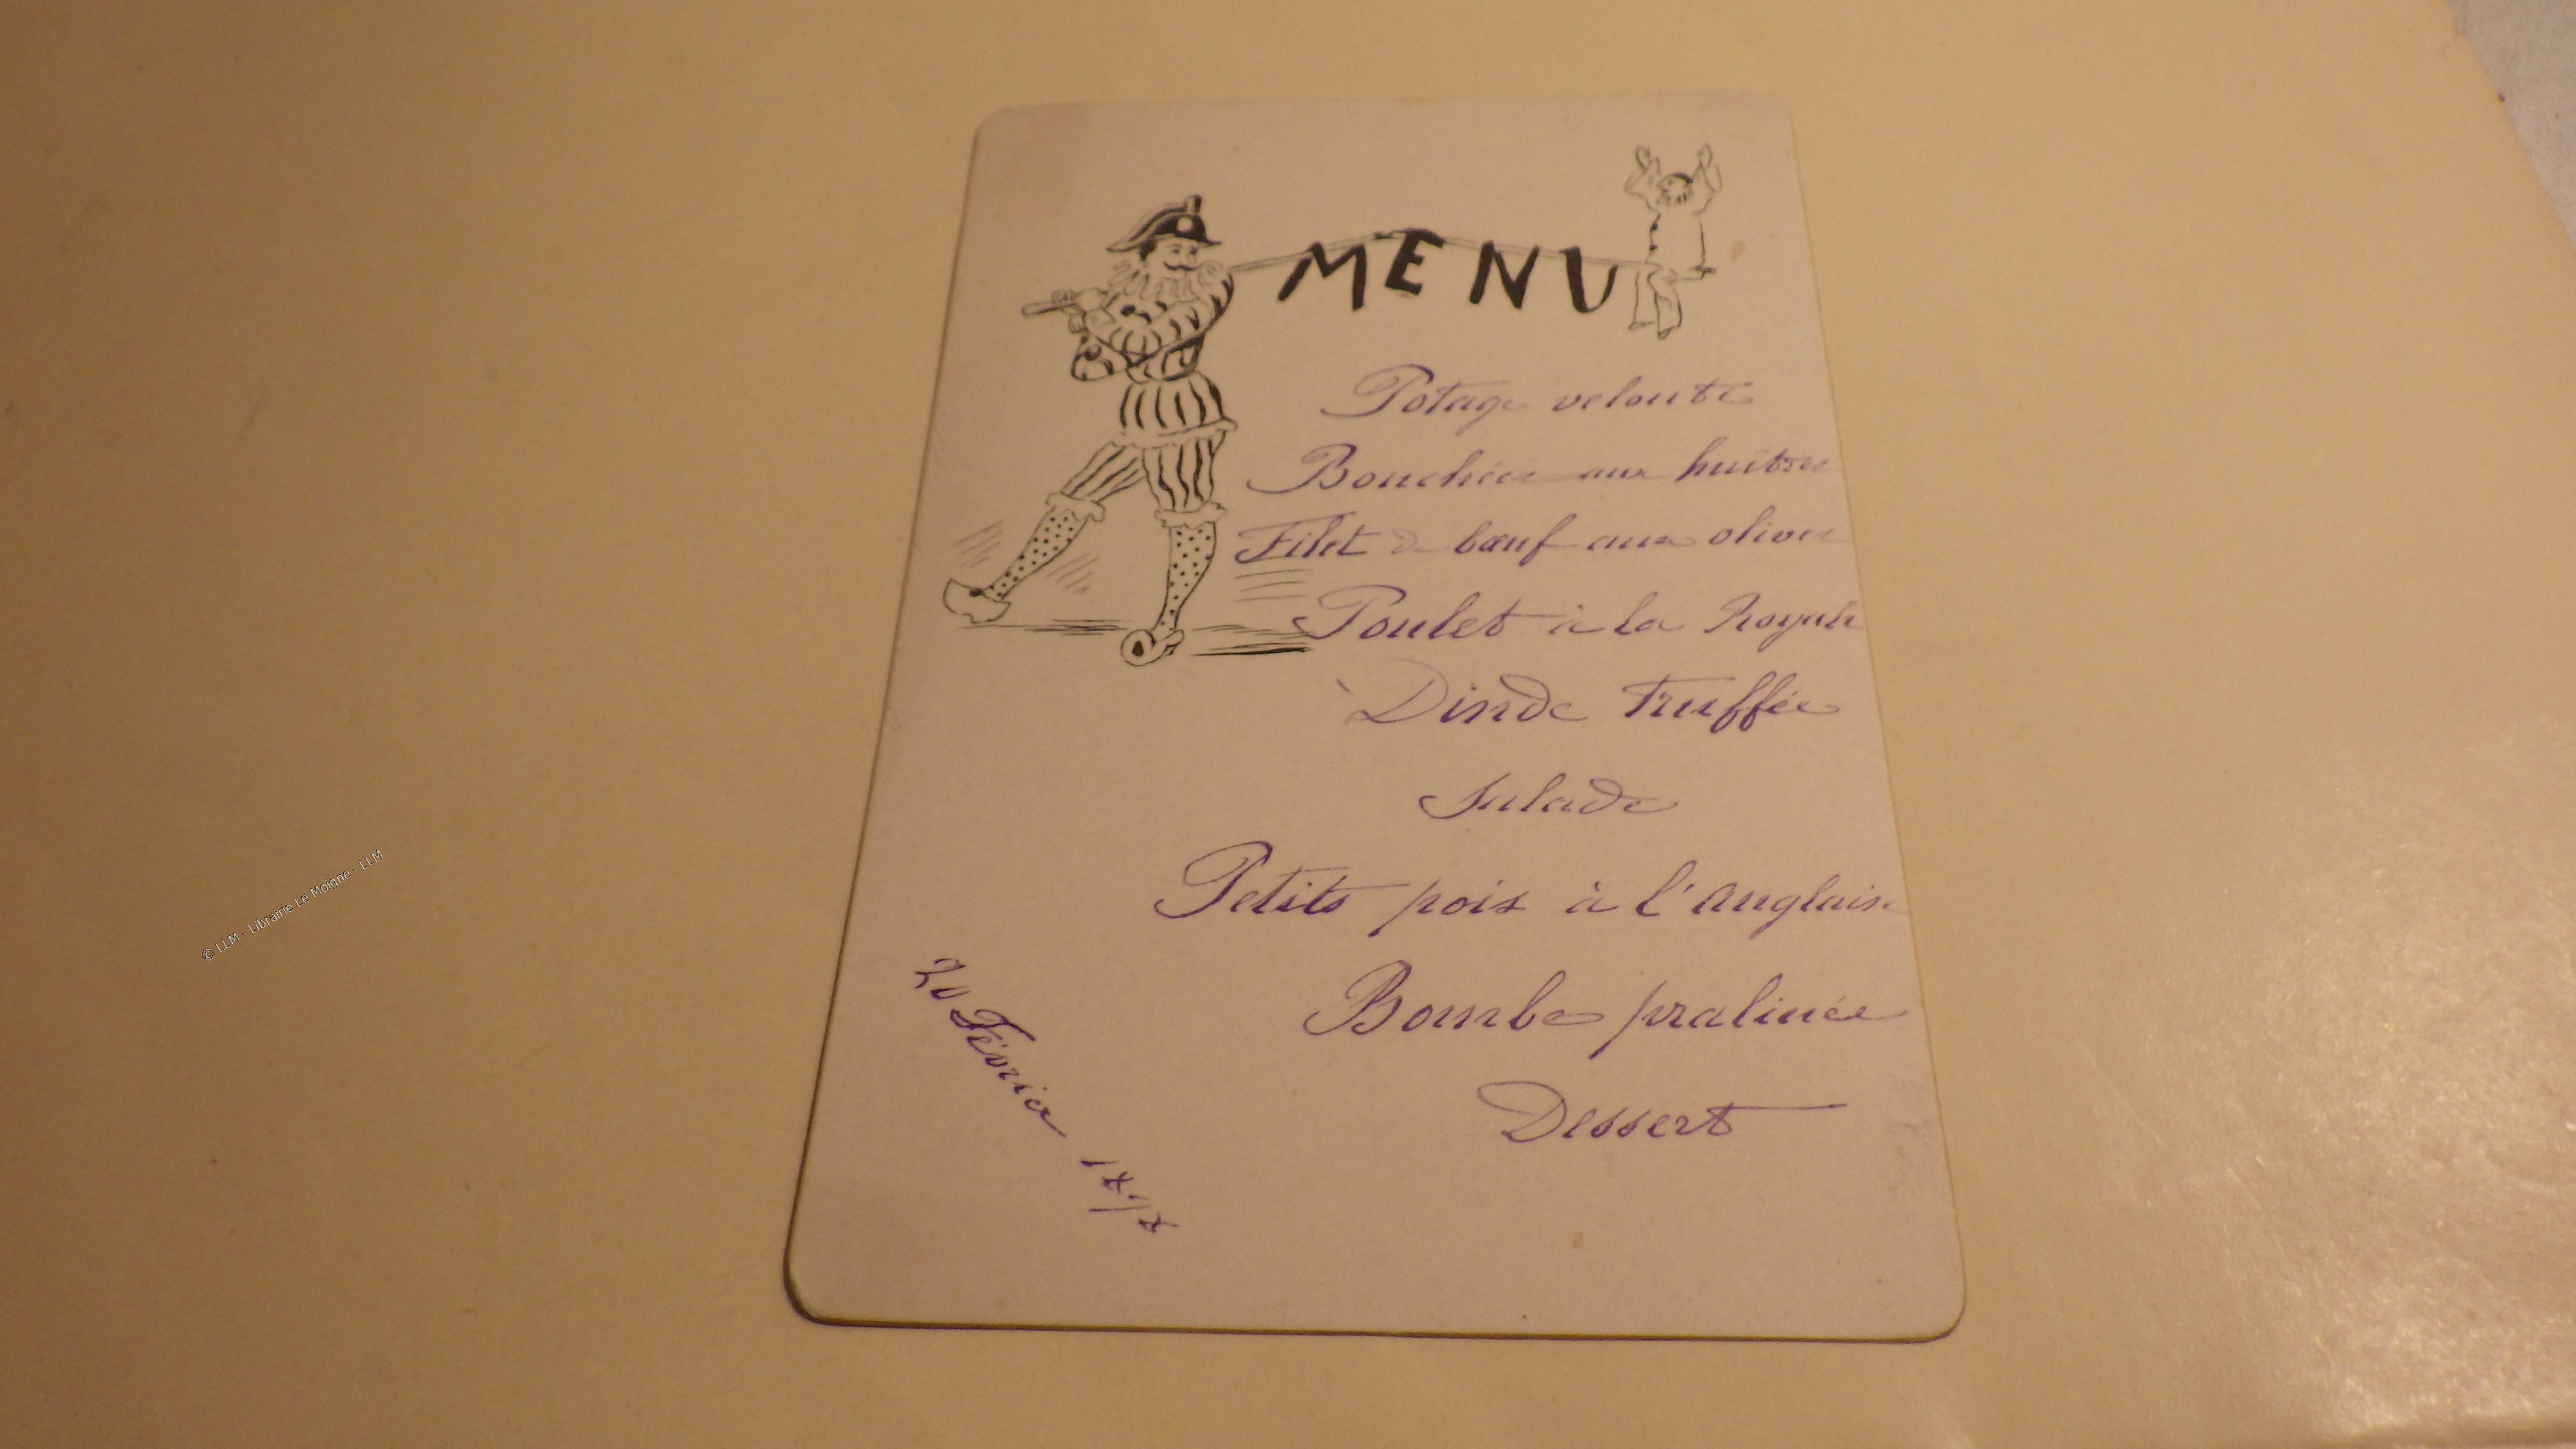 MENU
Potage velouté
Bouchées aux huîtres
Filet de bœuf aux olives
Poulet à la Royale
Dinde Truffée
Salade
Petits pois à l'anglaise
Bombe pralinée
Dessert
20 Février
© LLM - Librairie Le Moigne - LLM